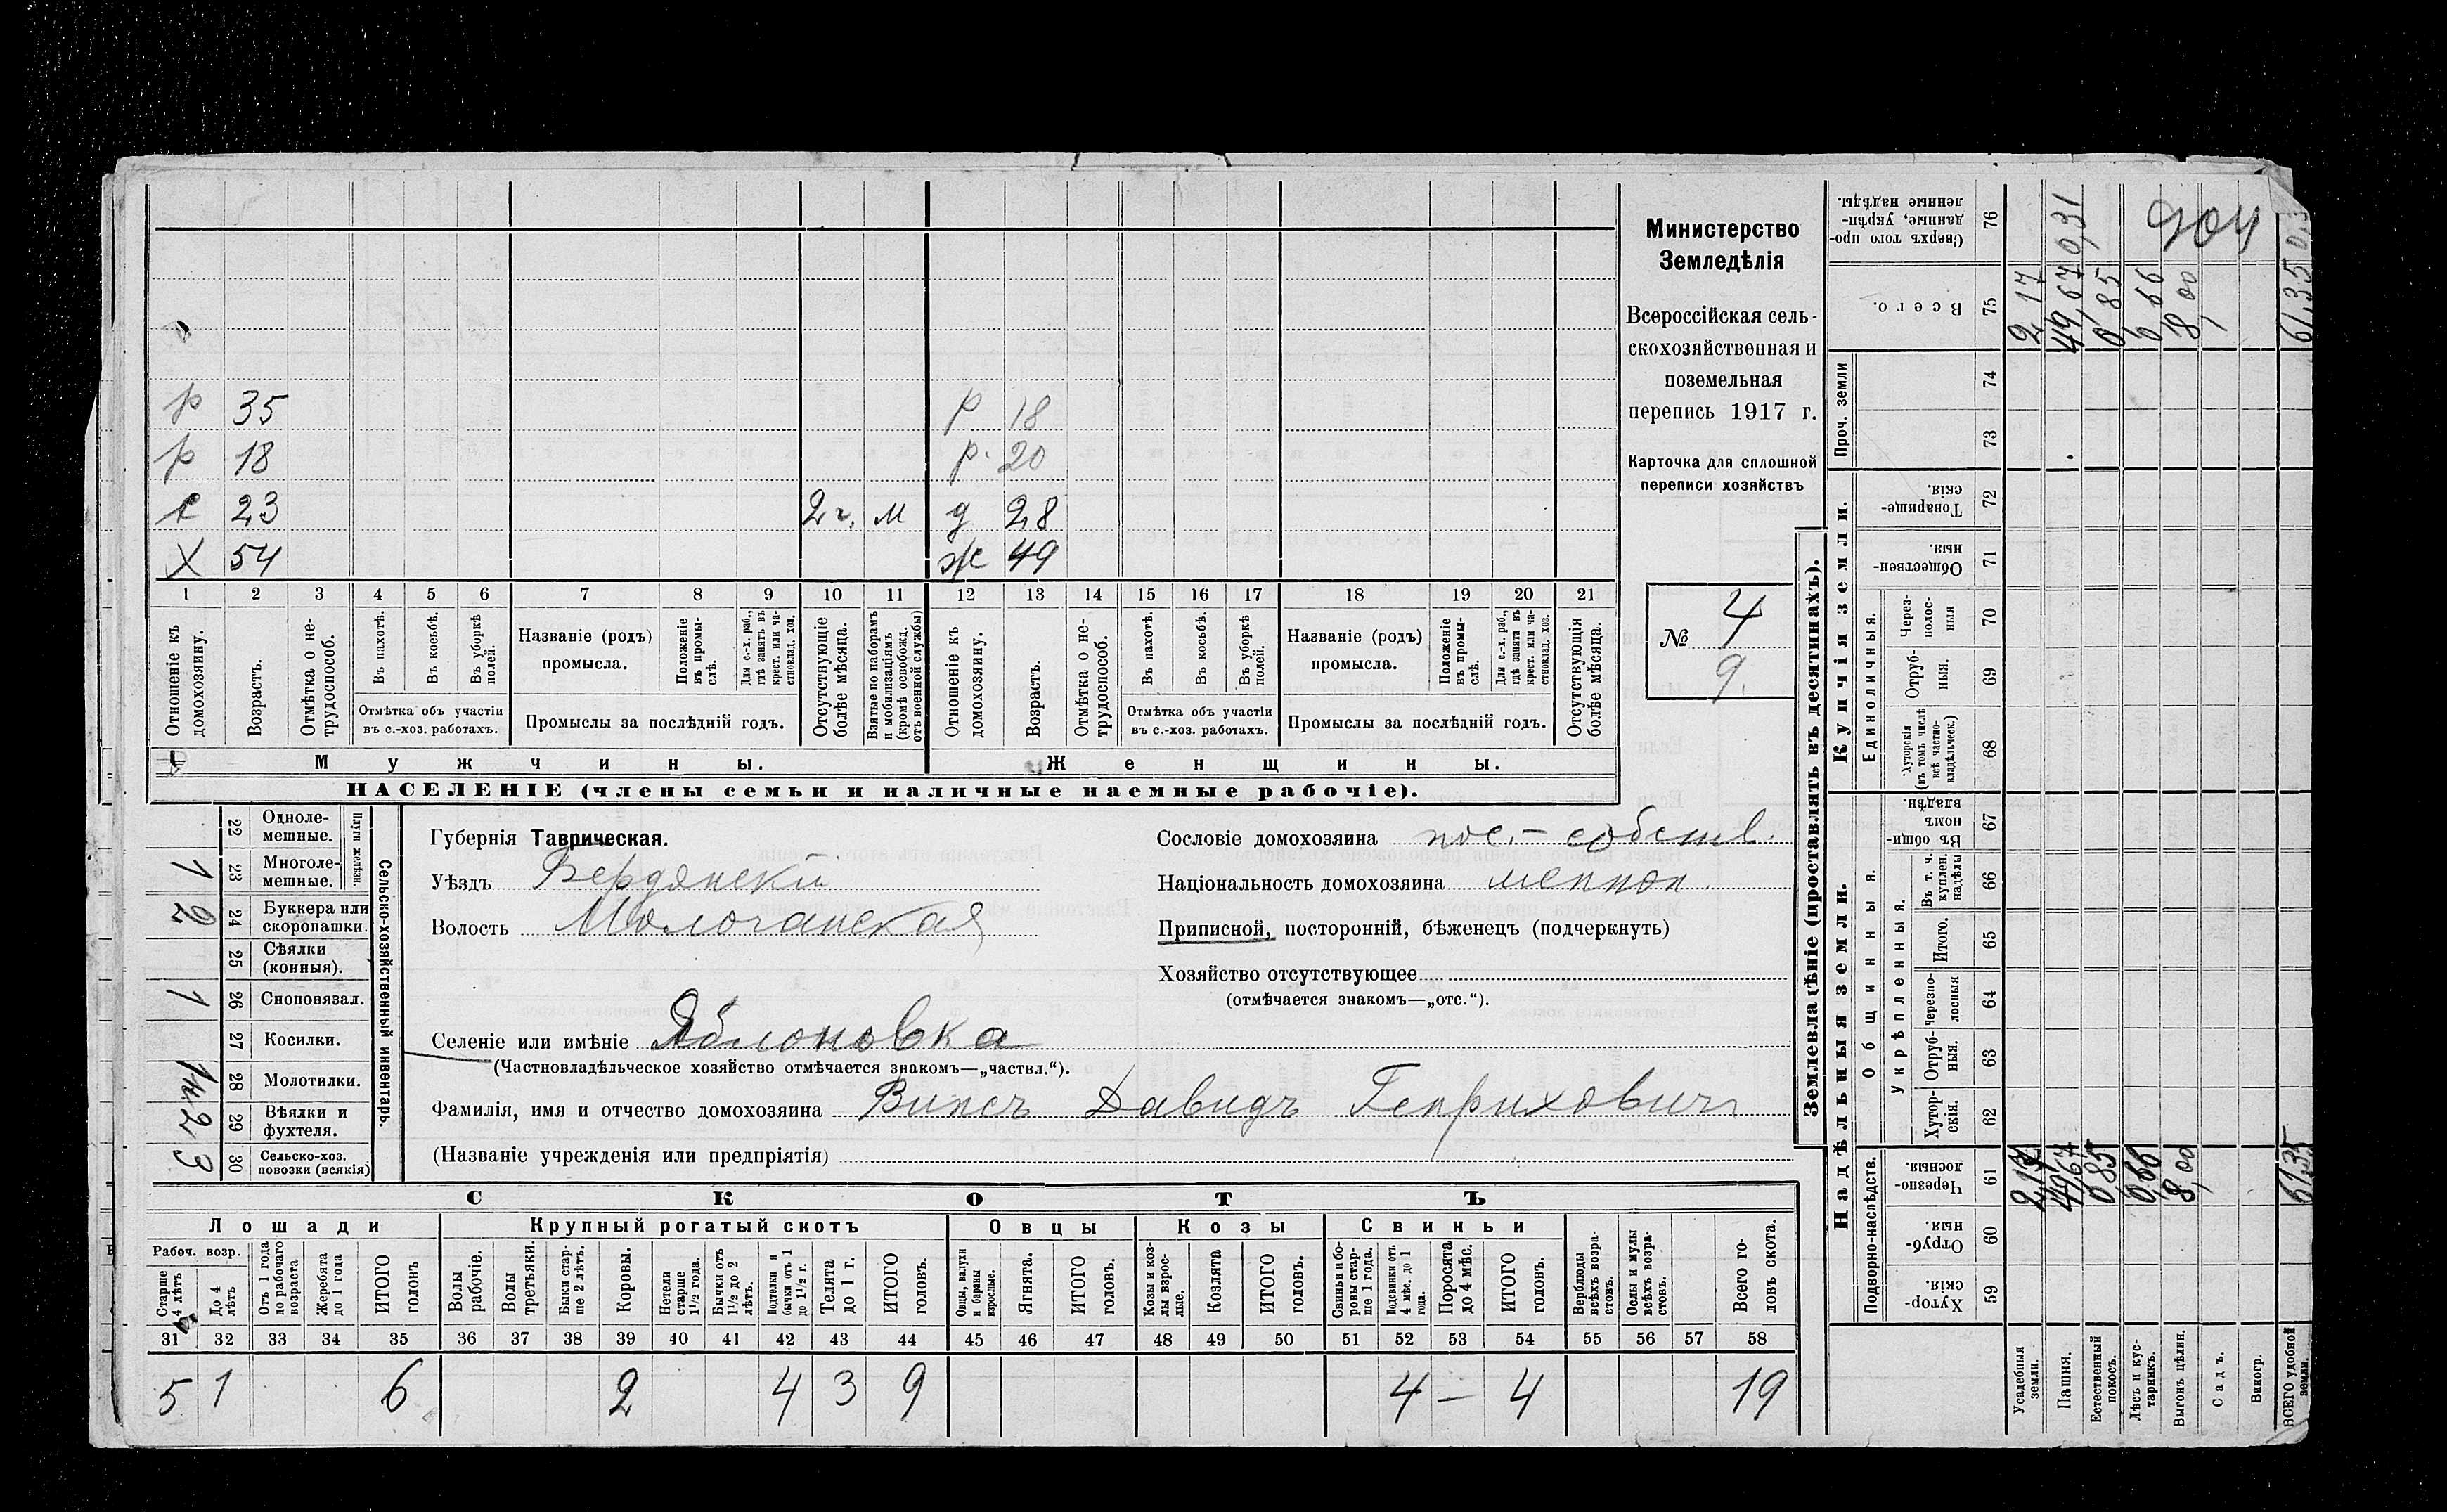 Министерство
Земледѣлія
Всероссійская сель-
скохозяйственная и
поземельная
перепись 1917 г.
Карточка для сплошной
переписи хозяйствъ
№ 4
9.
р 35 р 18
р 18 р. 20
с 23 2 г. м д 28
Х 54 ж 49
1 2 3 4 5 6 7 8 9 10 11 12 13 14 15 16 17 18 19 20 21
Отношеніе къ домохозяину.
Возрастъ.
Отмѣтка о не-трудоспособ.
Въ пахотѣ.
Въ косьбѣ.
Въ уборкѣ полей.
Отмѣтка объ участіи
въ с.-хоз. работахъ.
Названіе (родъ)
промысла.
Положеніе въ промы-слѣ.
Для с.-х. раб., гдѣ занятъ въ крест. или ча-стновлад. хоз.
Промыслы за послѣдній годъ.
Отсутствующіе болѣе мѣсяца.
Взятые по наборамъ и мобилизаціямъ (кромѣ освобожд. отъ военной службы)
Отношеніе къ домохозяину.
Возрастъ.
Отмѣтка о не-трудоспособ.
Въ пахотѣ.
Въ косьбѣ.
Въ уборкѣ полей.
Отмѣтка объ участіи
въ с.-хоз. работахъ.
Названіе (родъ)
промысла.
Положеніе въ промы-слѣ.
Для с.-х. раб., гдѣ занята въ крест. или ча-стновлад. хоз.
Промыслы за послѣдній годъ.
Отсутствующія болѣе мѣсяца.
Мужчины. Женщины.
НАСЕЛЕНІЕ (члены семьи и наличные наемные рабочіе).
Губернія Таврическая.
Уѣздъ Бердянскій
Волость Молочанская
Селеніе или имѣніе Яблоновка
(Частновладѣльческое хозяйство отмѣчается знакомъ—„частвл.“).
Фамилія, имя и отчество домохозяина Винсъ Давидъ Генриховичъ
(Названіе учрежденія или предпріятія)
Сословіе домохозяина пос.- собств.
Національность домохозяина меннон
Приписной, посторонній, бѣженецъ (подчеркнуть)
Хозяйство отсутствующее
(отмѣчается знакомъ—„отс.“).
Сельско-хозяйственный инвентарь.
Плуги желѣзн.
22 Одноле-мешные.
1 23 Многоле-мешные.
2 24 Буккера или скоропашки.
25 Сѣялки (конныя).
1 26 Сноповязал.
27 Косилки.
1 к. 28 Молотилки.
2 29 Вѣялки и фухтеля.
3 30 Сельско-хоз. повозки (всякія)
СКОТЪ
Лошади Крупный рогатый скотъ Овцы Козы Свиньи
Рабоч. возр.
Старше 4 лѣтъ
До 4 лѣтъ
Отъ 1 года до рабочаго возраста
Жеребята до 1 года
ИТОГО головъ
Волы рабочіе.
Волы третьяки.
Быки стар-ше 2 лѣтъ.
Коровы.
Нетели старше 1½ года.
Бычки отъ 1½ до 2 лѣтъ.
Подтелки и бычки отъ 1 до 1½ г.
Телята до 1 г.
ИТОГО головъ.
Овцы, валухи и бараны взрослые.
Ягнята.
ИТОГО головъ.
Козы и коз-лы взрос-лые.
Козлята
ИТОГО головъ.
Свиньи и бо-ровы стар-ше 1 года.
Подсвинки отъ 4 мѣс. до 1 года.
Поросята до 4 мѣс.
ИТОГО головъ.
Верблюды всѣхъ возра-стовъ.
Ослы и мулы всѣхъ возра-стовъ.
Всего го-ловъ скота.
31 32 33 34 35 36 37 38 39 40 41 42 43 44 45 46 47 48 49 50 51 52 53 54 55 56 57 58
5 1 6 2 4 3 9 4 — 4 19
Землевладѣніе (проставлять въ десятинахъ).
Надѣльныя земли.
Купчія земли.
Проч. земли
Подворно-наслѣдств.
Общинныя.
Укрѣпленныя.
Единоличныя.
Хутор-скія. 59
Отруб-ныя. 60
Черезпо-лосныя 61
Хутор-скія. 62
Отруб-ныя. 63
Черезпо-лосныя 64
Итого. 65
Въ т. ч. куплен. надѣлы 66
Въ общи-номъ владѣн. 67
Хуторскія (въ томъ числѣ всѣ частно-владѣльческ.) 68
Отруб-ныя. 69
Через-полос-ныя 70
Обществен-ныя. 71
Товарище-скія. 72
73
74
Всего. 75
Сверхъ того про-данные, укрѣп-ленные надѣлы. 76
Усадебныя земли. 2,17 2,17
Пашня. 49,67 49,67 0,31
Естественный покосъ. 0,85 0,85
Лѣсъ и кус-тарникъ. 0,66 0,66
Выгонъ цѣлин. 8,00 8,00
Садъ.
Виногр.
ВСЕГО удобной земли. 61,35 61,35
904